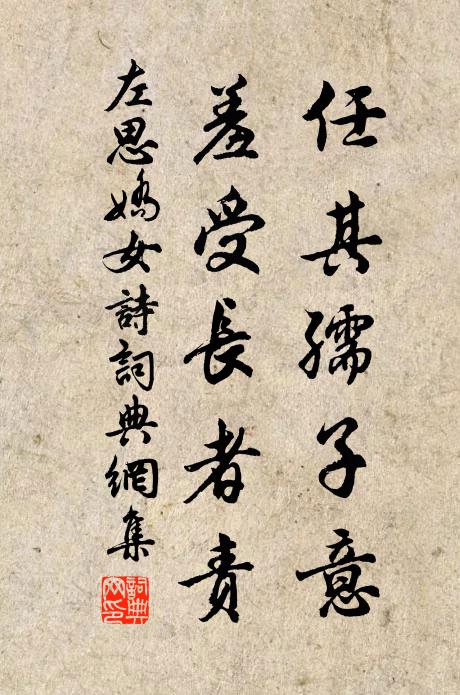 任其孺子意
羞受長者責
左思嬌女詩詞典網集
詞典網印